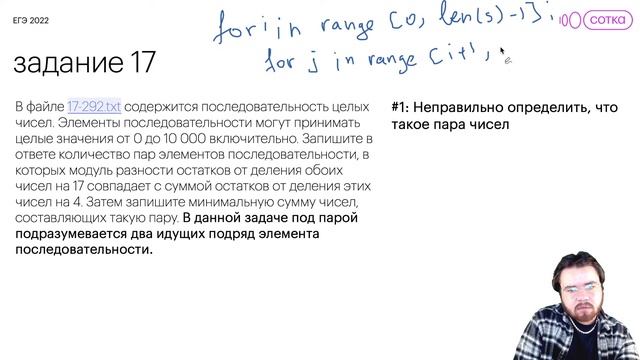 ЕГЭ 2022
for i in range (0, len(s)-1):
for j in range (i+1,
сотка
задание 17
В файле 17-292.txt содержится последовательность целых
чисел. Элементы последовательности могут принимать
целые значения от 0 до 10 000 включительно. Запишите в
ответе количество пар элементов последовательности, в
которых модуль разности остатков от деления обоих
чисел на 17 совпадает с суммой остатков от деления этих
чисел на 4. Затем запишите минимальную сумму чисел,
составляющих такую пару. В данной задаче под парой
подразумевается два идущих подряд элемента
последовательности.
#1: Неправильно определить, что
такое пара чисел